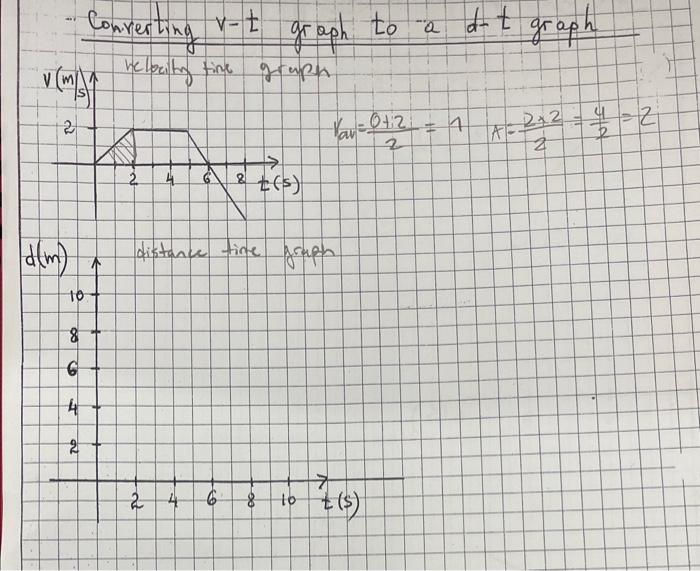 Converting v-t graph to a d-t graph
velocity time graph
v(m/s)
2
2 4 6 8 t(s)
Vav = 0+2/2 = 1 A = 2×2/2 = 4/2 = 2
distance time graph
d(m)
10
8
6
4
2
2 4 6 8 10 t(s)